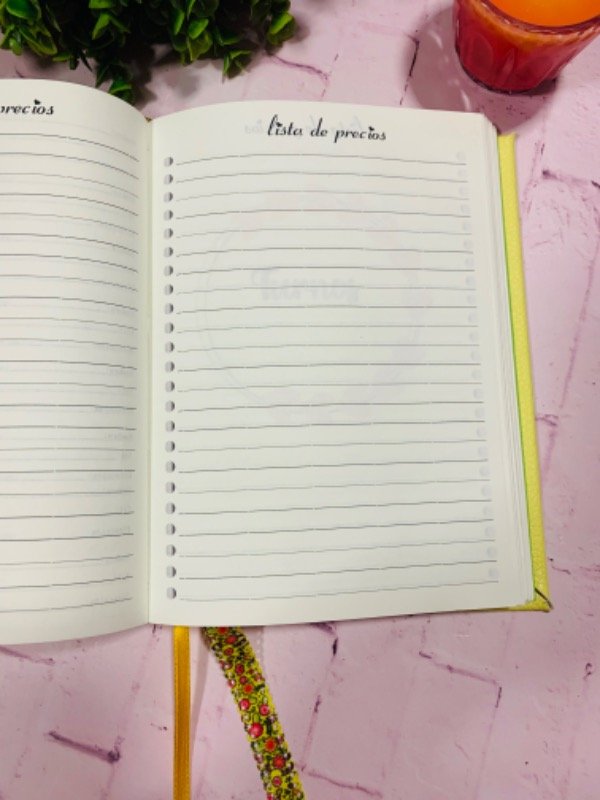 precios
lista de precios